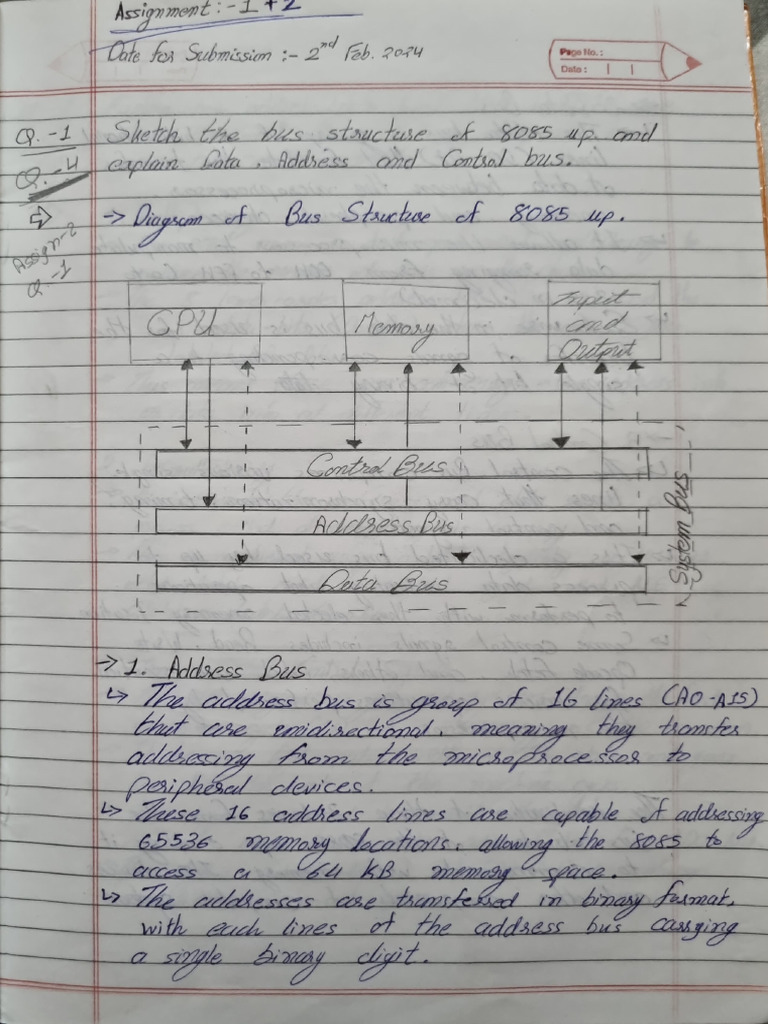 Assignment :- 1 + 2
Date for Submission :- 2nd Feb. 2024
Page No.:
Date:
Q.-1 Sketch the bus structure of 8085 up and
Q.-4 explain Data, Address and Control bus.
→ Diagram of Bus Structure of 8085 up.
Assign-2
Q.-1
CPU
Memory
Input
and
Output
Control Bus
Address Bus
Data Bus
System Bus
→ 1. Address Bus
↳ The address bus is group of 16 lines (A0-A15)
that are unidirectional, meaning they transfer
addressing from the microprocessor to
peripheral devices.
↳ These 16 address lines are capable of addressing
65536 memory locations, allowing the 8085 to
access a 64 KB memory space.
↳ The addresses are transferred in binary format,
with each lines of the address bus carrying
a single binary digit.